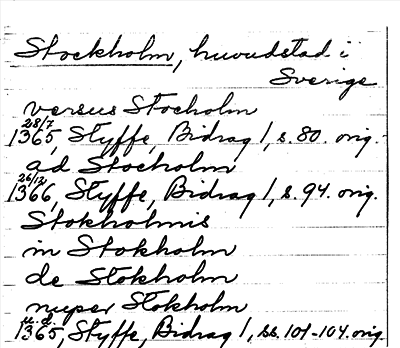 Stockholm, huvudstad i
Sverige
versus Stocholm
28/7
1365, Styffe, Bidrag 1, s. 80. orig.
ad Stocholm
26/12
1366, Styffe, Bidrag 1, s. 94. orig.
Stokholmis
in Stokholm
de Stokholm
nuper Stokholm
u.d.
1365, Styffe, Bidrag 1, ss. 101-104. orig.